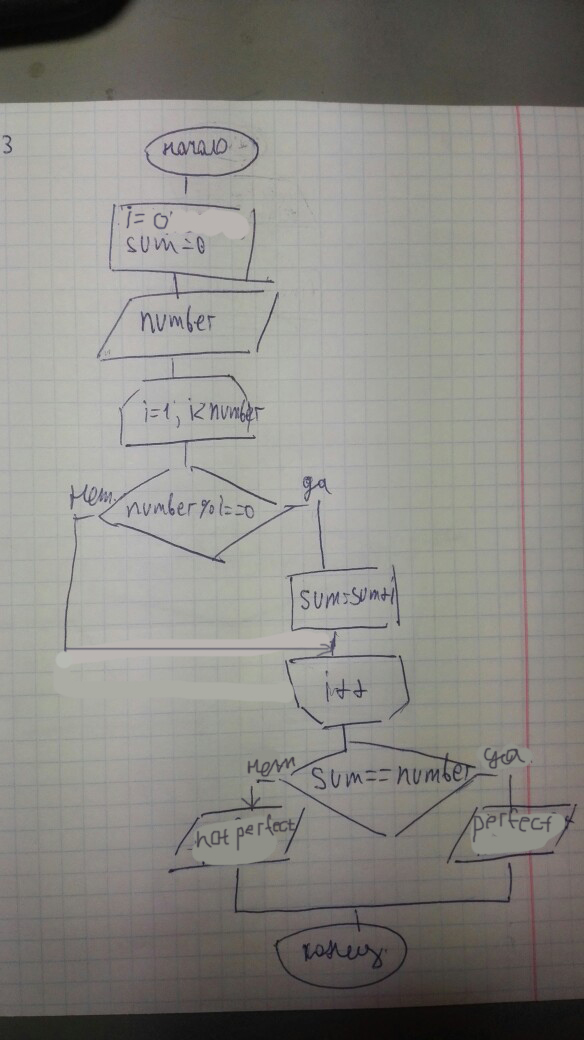 3
начало
i=0
sum=0
number
i=1; i<number
нет
number%i==0
да
sum=sum+i
i++
нет
sum==number
да
not perfect
perfect
конец